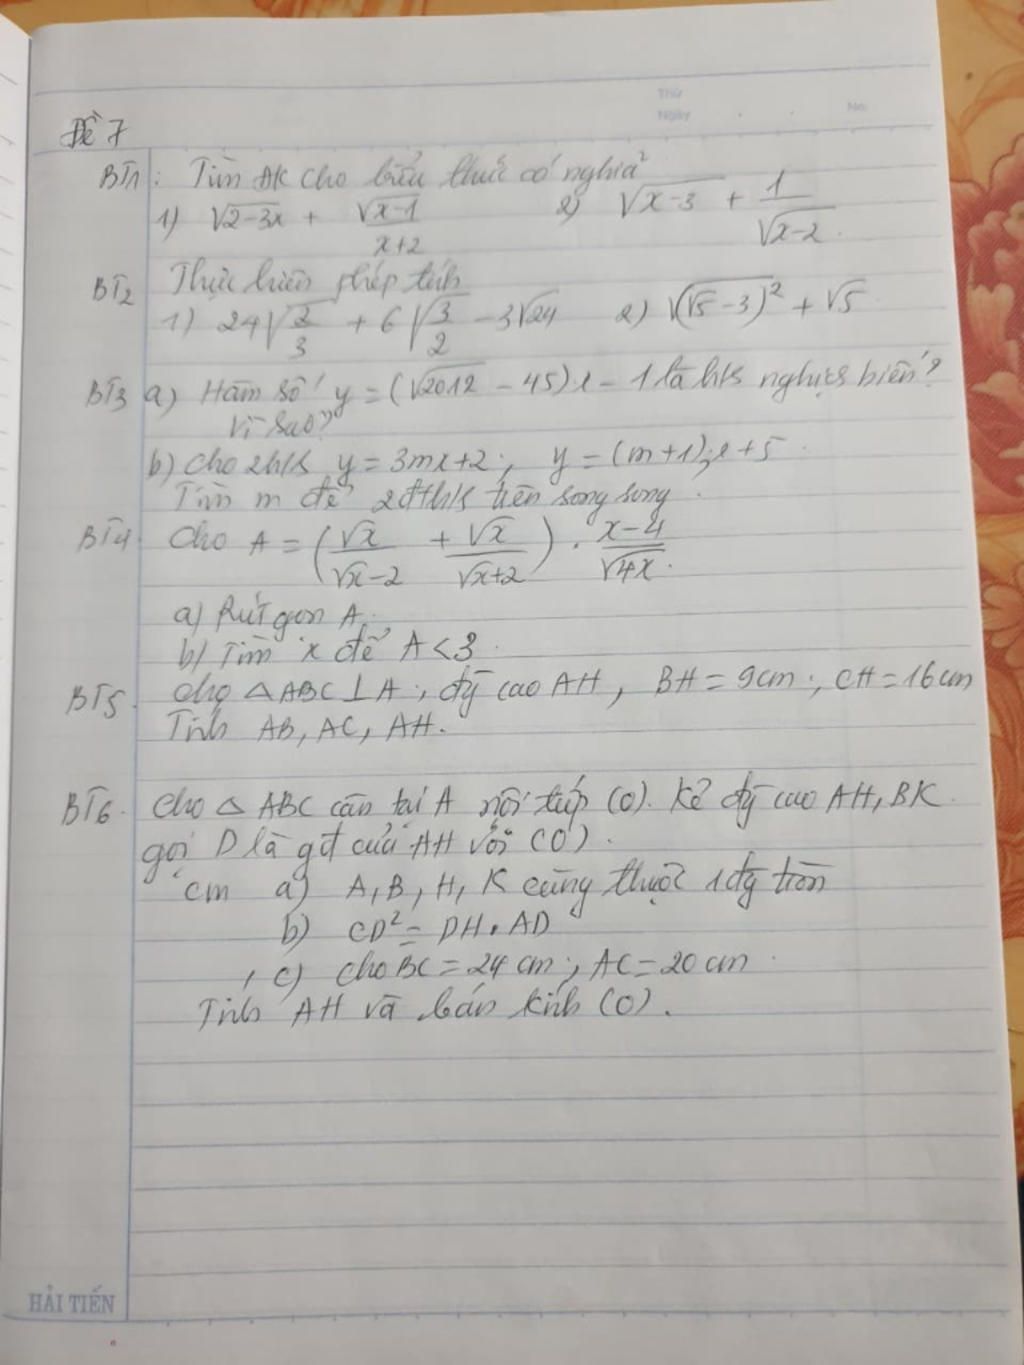 Thứ
Ngày No.
Đề 7
BT1: Tìm ĐK cho biểu thức có nghĩa
1) √(2-3x) + √(x-1)/(x+2) 2) √(x-3) + 1/√(x-2)
BT2 Thực hiện phép tính
1) 24√(2/3) + 6√(3/2) - 3√24 2) √((√5 - 3)²) + √5
BT3 a) Hàm số y = (√2012 - 45)x - 1 là h/s nghịch biến?
Vì sao?
b) Cho 2 h/s y = 3mx+2; y = (m+1)x+5
Tìm m để 2 đths trên song song.
BT4 Cho A = (√x/(√x-2) + √x/(√x+2)) . (x-4)/√4x.
a) Rút gọn A.
b) Tìm x để A < 3.
BT5. Cho △ABC ⊥ A; đg cao AH, BH = 9cm; CH = 16cm
Tính AB, AC, AH.
BT6. Cho △ ABC cân tại A nội tiếp (O). Kẻ đg cao AH, BK.
gọi D là gđ của AH với (O).
cm a) A, B, H, K cùng thuộc 1 đg tròn
b) CD² = DH . AD
c) Cho BC = 24 cm; AC = 20 cm.
Tính AH và bán kính (O).
HẢI TIẾN